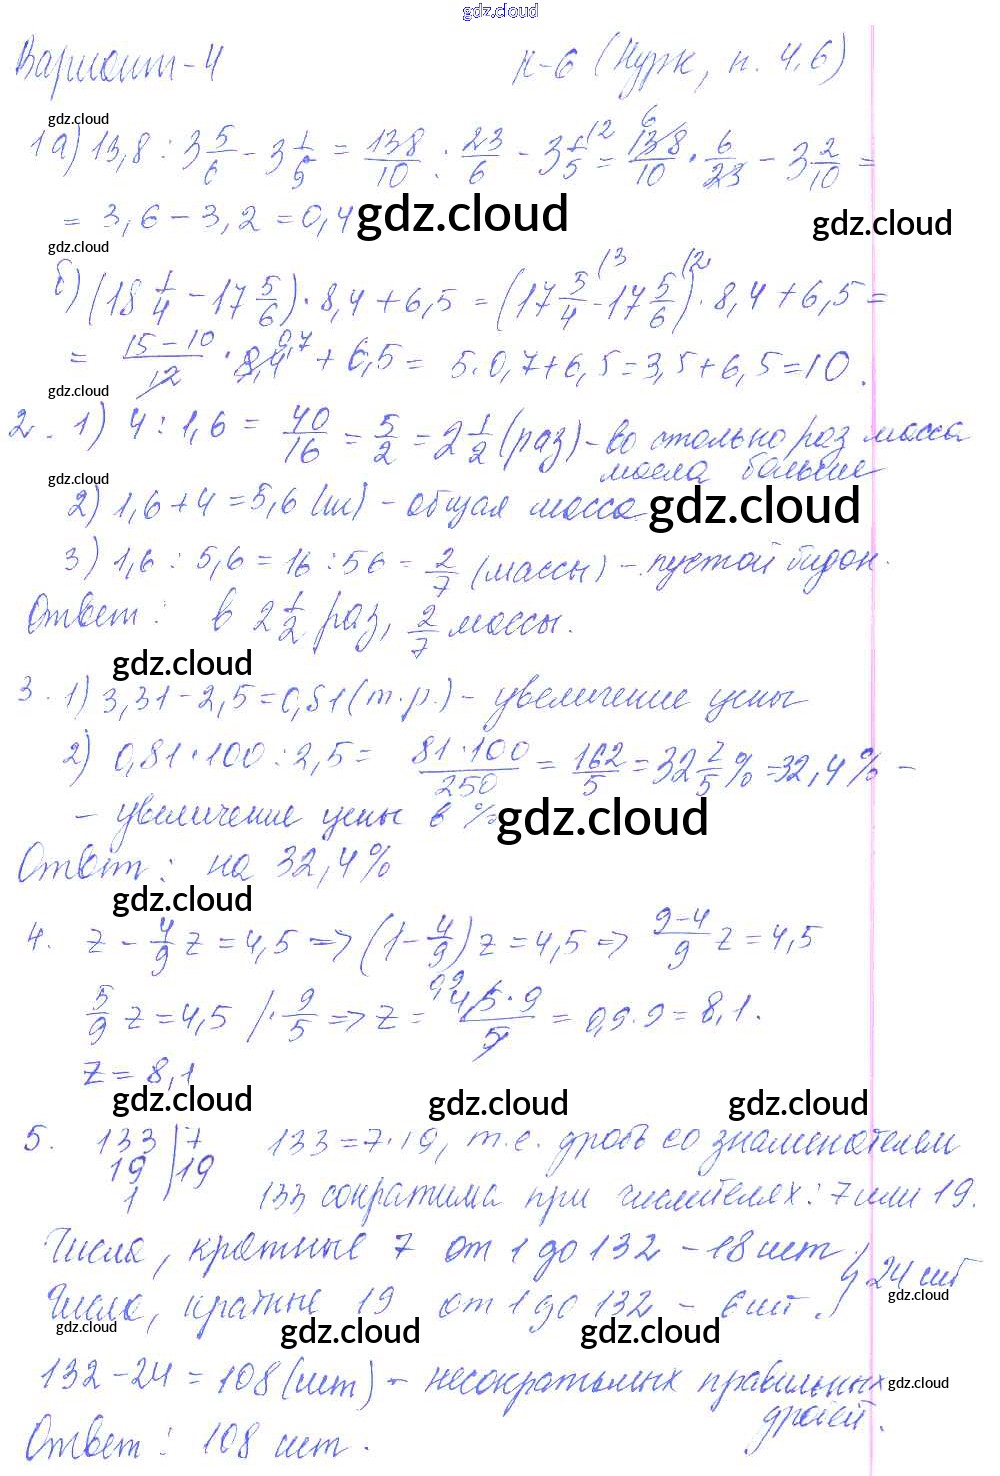 gdz.cloud
Вариант-4 К-6 (Нурк, п. 4.6)
gdz.cloud
1а) 13,8 : 3 5/6 - 3 1/5 = 138/10 : 23/6 - 3 1/5 = 138/10 · 6/23 - 3 2/10 =
= 3,6 - 3,2 = 0,4
gdz.cloud
gdz.cloud
gdz.cloud
б) (18 1/4 - 17 5/6) · 8,4 + 6,5 = (17 5/4 - 17 5/6) · 8,4 + 6,5 =
= 15-10/12 · 8,4 + 6,5 = 5·0,7+6,5=3,5+6,5=10.
gdz.cloud
2. 1) 4 : 1,6 = 40/16 = 5/2 = 2 1/2 (раз) - во столько раз масса
масла больше
gdz.cloud
2) 1,6 + 4 = 5,6 - общая масса
gdz.cloud
3) 1,6 : 5,6 = 16 : 56 = 2/7 (массы) - пустой бидон.
Ответ: в 2 1/2 раз, 2/7 массы.
gdz.cloud
3. 1) 3,31 - 2,5 = 0,81 (т.р.) - увеличение цены
2) 0,81 · 100 : 2,5 = 81·100/250 = 162/5 = 32 2/5 % = 32,4 % -
- увеличение цены в %
gdz.cloud
Ответ: на 32,4%
gdz.cloud
4. z - 4/9 z = 4,5 => (1 - 4/9) z = 4,5 => 9-4/9 z = 4,5
5/9 z = 4,5 /· 9/5 => z = 4,5·9/5 = 0,9·9 = 8,1.
z = 8,1
gdz.cloud
gdz.cloud
gdz.cloud
5. 133 | 7 133 = 7·19, т.е. дробь со знаменателем
19 | 19
1 133 сократима при числителях: 7 или 19.
Числа, кратные 7 от 1 до 132 - 18 шт
Числа, кратные 19 от 1 до 132 - 6 шт. } 24 шт
gdz.cloud
gdz.cloud
gdz.cloud
gdz.cloud
132 - 24 = 108 (шт) - несократимых правильных
gdz.cloud
дробей.
Ответ: 108 шт.